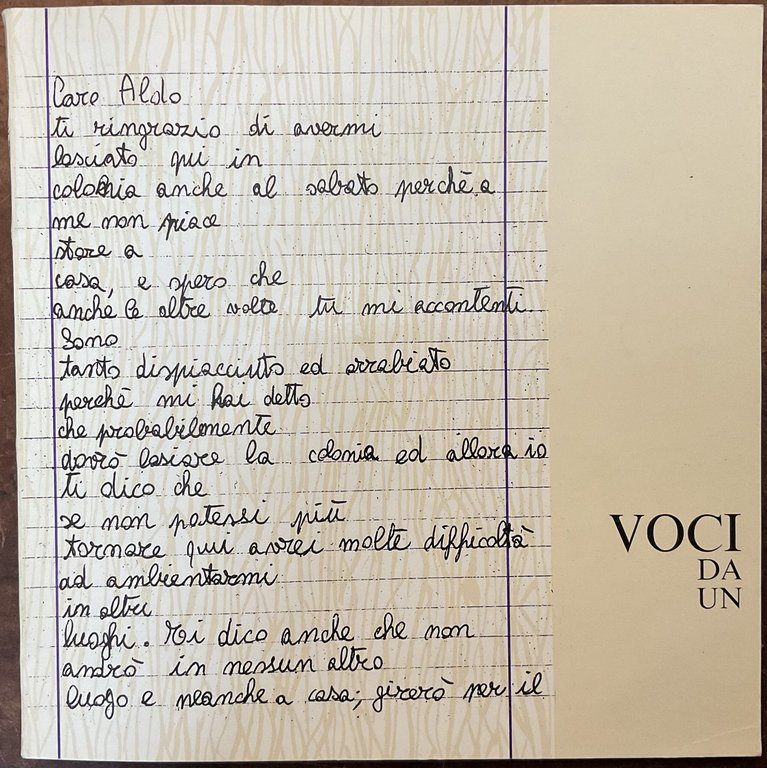 Caro Aldo
ti ringrazio di avermi
lasciato qui in
colonia anche al sabato perchè a
me non piace
stare a
casa, e spero che
anche le altre volte tu mi accontenti.
Sono
tanto dispiaciuto ed arrabiato
perchè mi hai detto
che probabilmente
dovrò lasiare la colonia ed allora io
ti dico che
se non potessi più
tornare qui avrei molte difficoltà
ad ambientarmi
in altri
luoghi. Ti dico anche che non
andrò in nessun altro
luogo e neanche a casa; girerò per il
VOCI
DA
UN